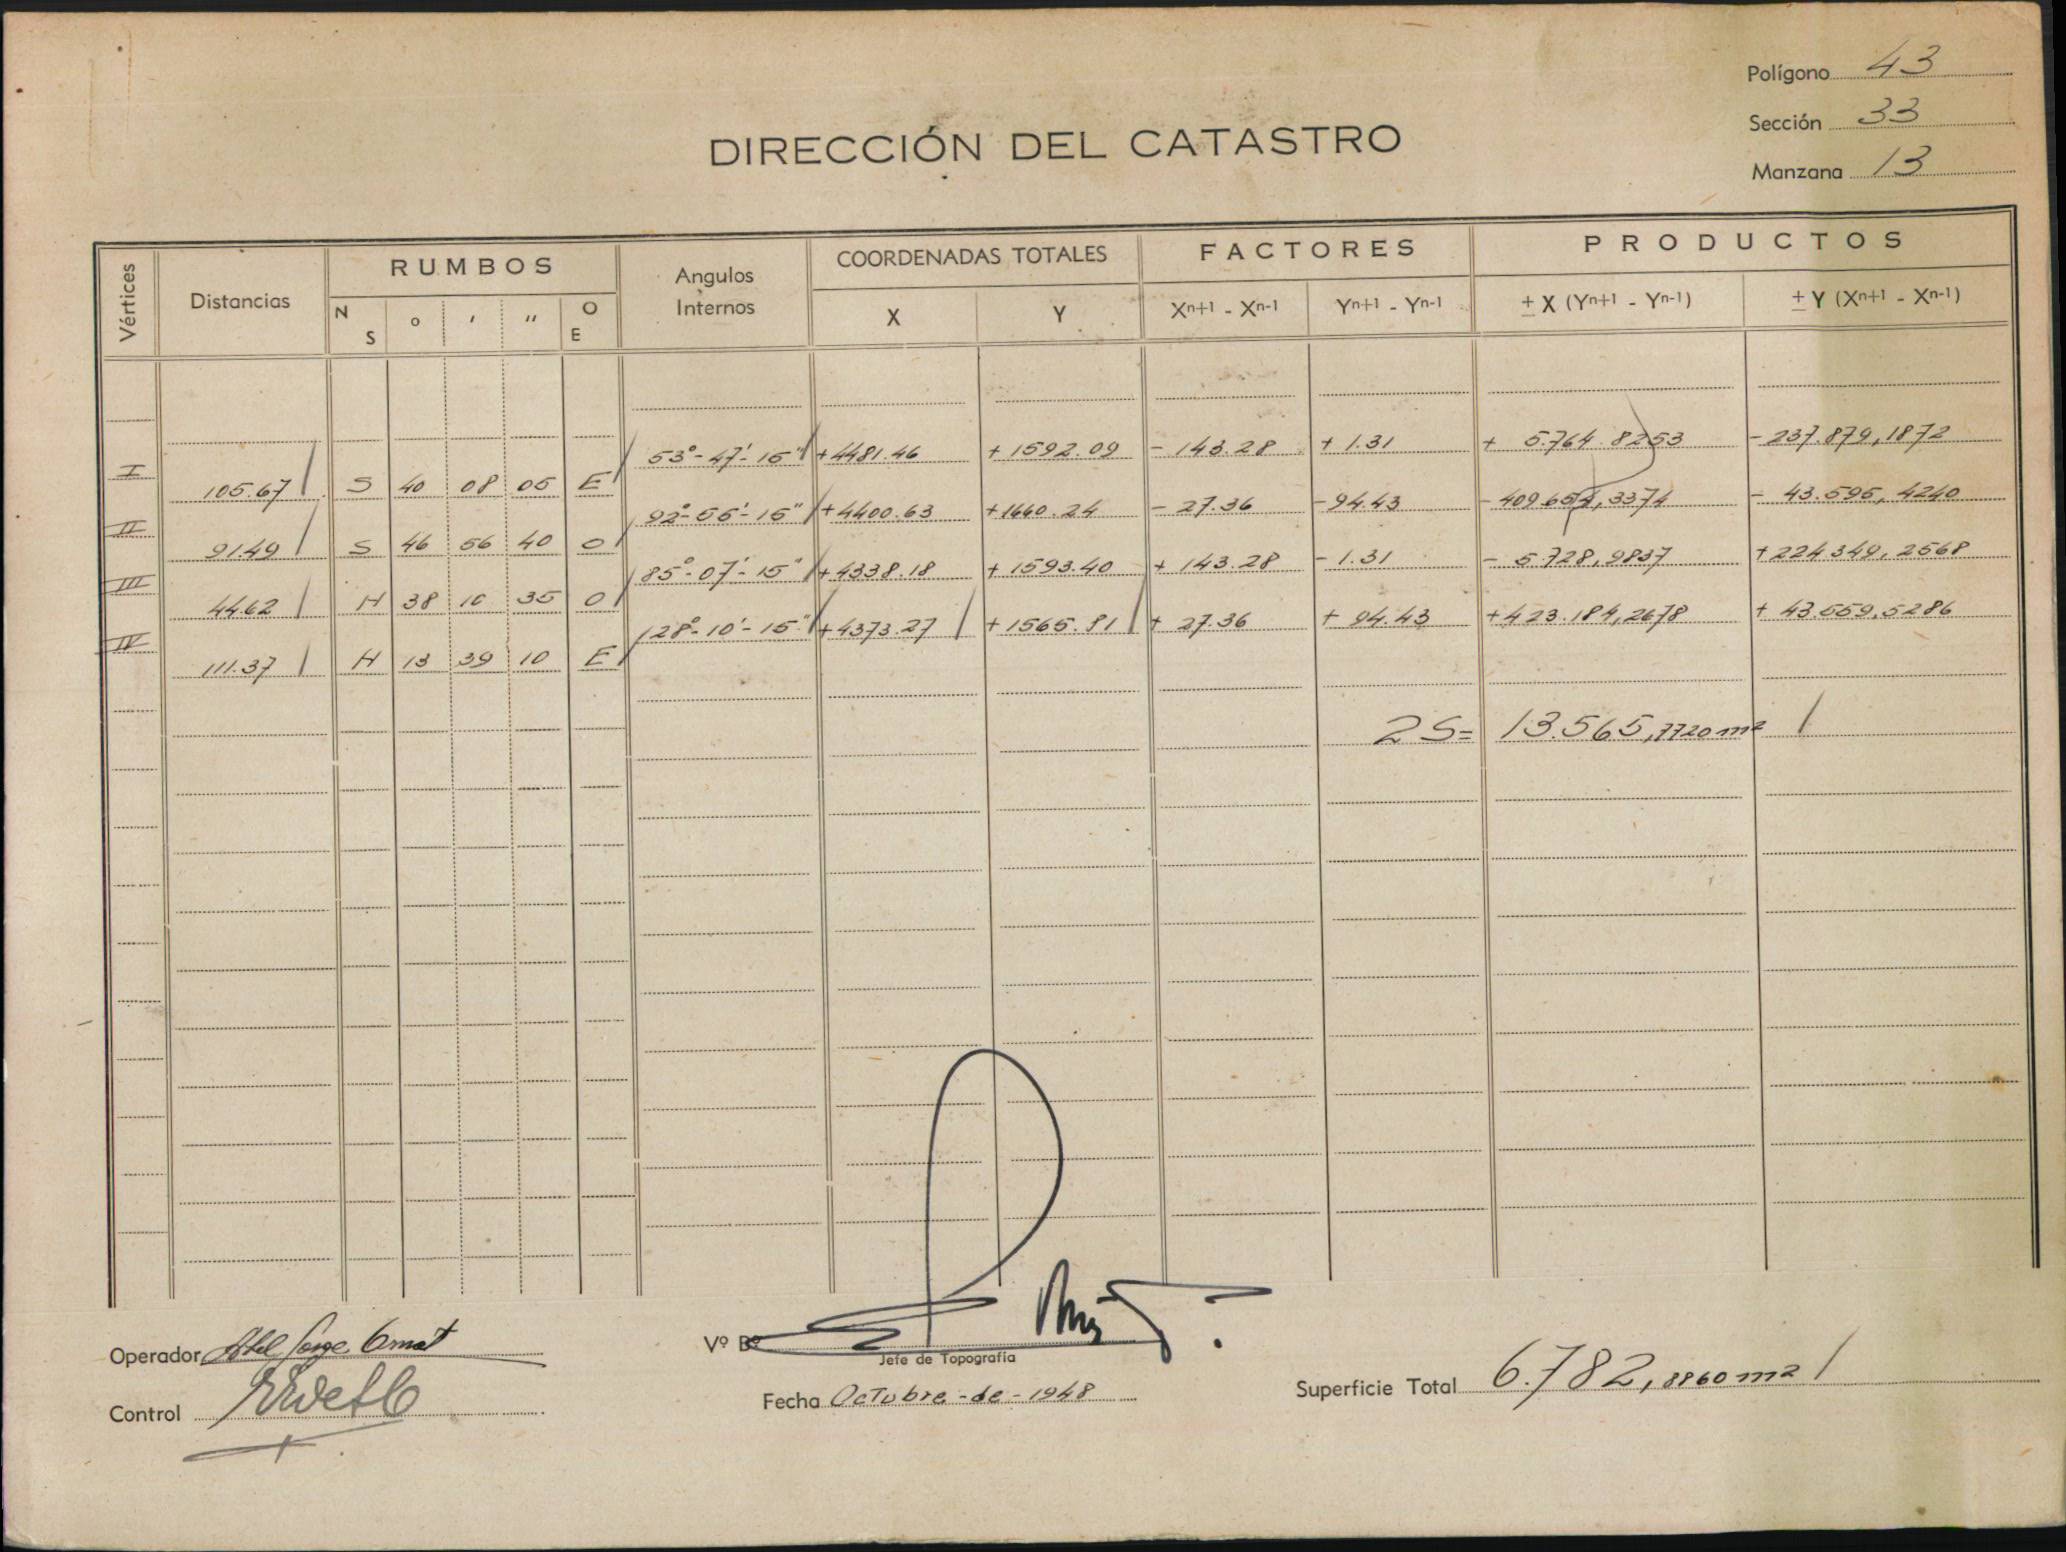 Polígono 43
Sección 33
Manzana 13
DIRECCIÓN DEL CATASTRO
Vértices Distancias RUMBOS Angulos Internos COORDENADAS TOTALES FACTORES PRODUCTOS
N S ° ' " O E X Y Xn+1 - Xn-1 Yn+1 - Yn-1 ± X (Yn+1 - Yn-1) ± Y (Xn+1 - Xn-1)
I 53°-47'-15" +4481.46 +1592.09 -143.28 +1.31 + 5.764.8253 -237.879,1872
105.67 S 40 08 05 E
II 92°-55'-15" +4400.63 +1660.24 -27.36 -94.43 -409.654,3374 - 43.595,4240
91.49 S 46 56 40 O
III 85°-07'-15" +4338.18 +1593.40 +143.28 -1.31 - 5.728,9837 +224.349,2568
44.62 N 38 10 35 O
IV 128°-10'-15" +4373.27 +1565.81 + 27.36 + 94.43 +423.184,2678 + 43.559,5286
111.37 N 13 39 10 E
2S= 13.565,7720 m²
Operador
Vº Bº
Jefe de Topografía
Control
Fecha Octubre - de - 1948
Superficie Total 6.782,8860 m²